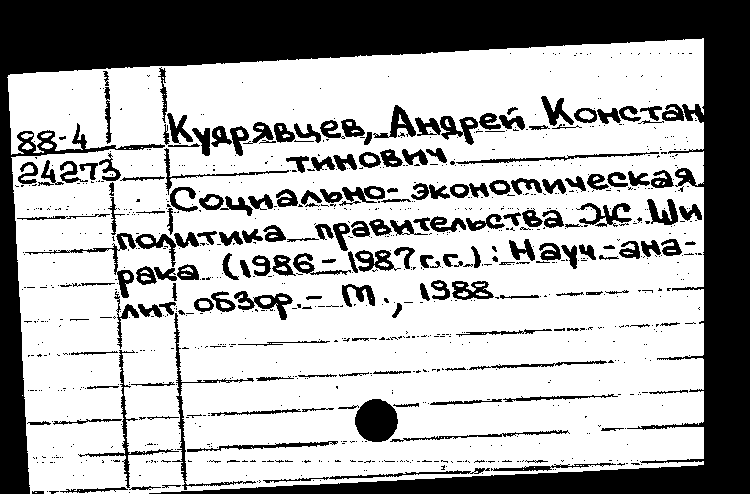 88-4 Кудрявцев, Андрей Констан
24273 тинович.
Социально-экономическая
политика правительства Ж. Ши
рака (1986-1987г.г.): Науч.-ана-
лит. обзор.- М., 1988.